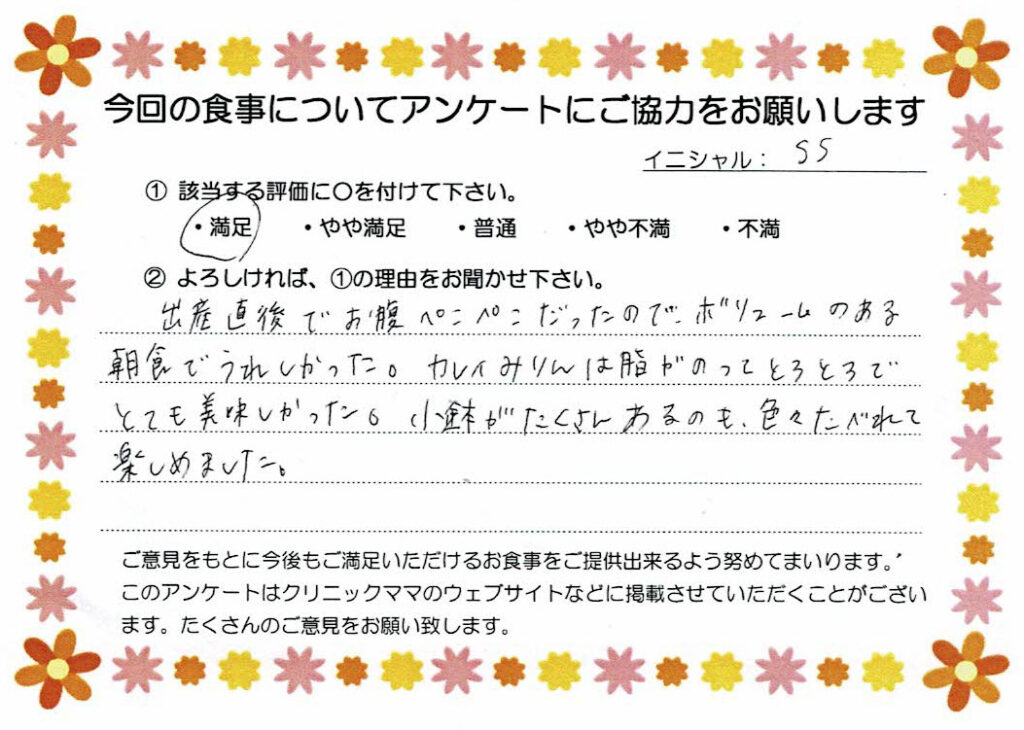 今回の食事についてアンケートにご協力をお願いします
イニシャル： SS
① 該当する評価に〇を付けて下さい。
・満足 ・やや満足 ・普通 ・やや不満 ・不満
② よろしければ、①の理由をお聞かせ下さい。
出産直後でお腹ペコペコだったので、ボリュームのある
朝食でうれしかった。カレイみりんは脂がのってとろとろで
とても美味しかった。小鉢がたくさんあるのも、色々たべれて
楽しめました。
ご意見をもとに今後もご満足いただけるお食事をご提供出来るよう努めてまいります。
このアンケートはクリニックママのウェブサイトなどに掲載させていただくことがござい
ます。たくさんのご意見をお願い致します。